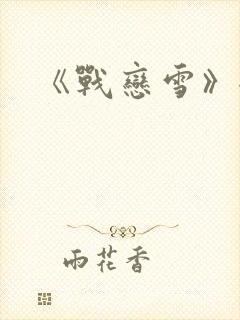 《戰戀雪》
雨花香